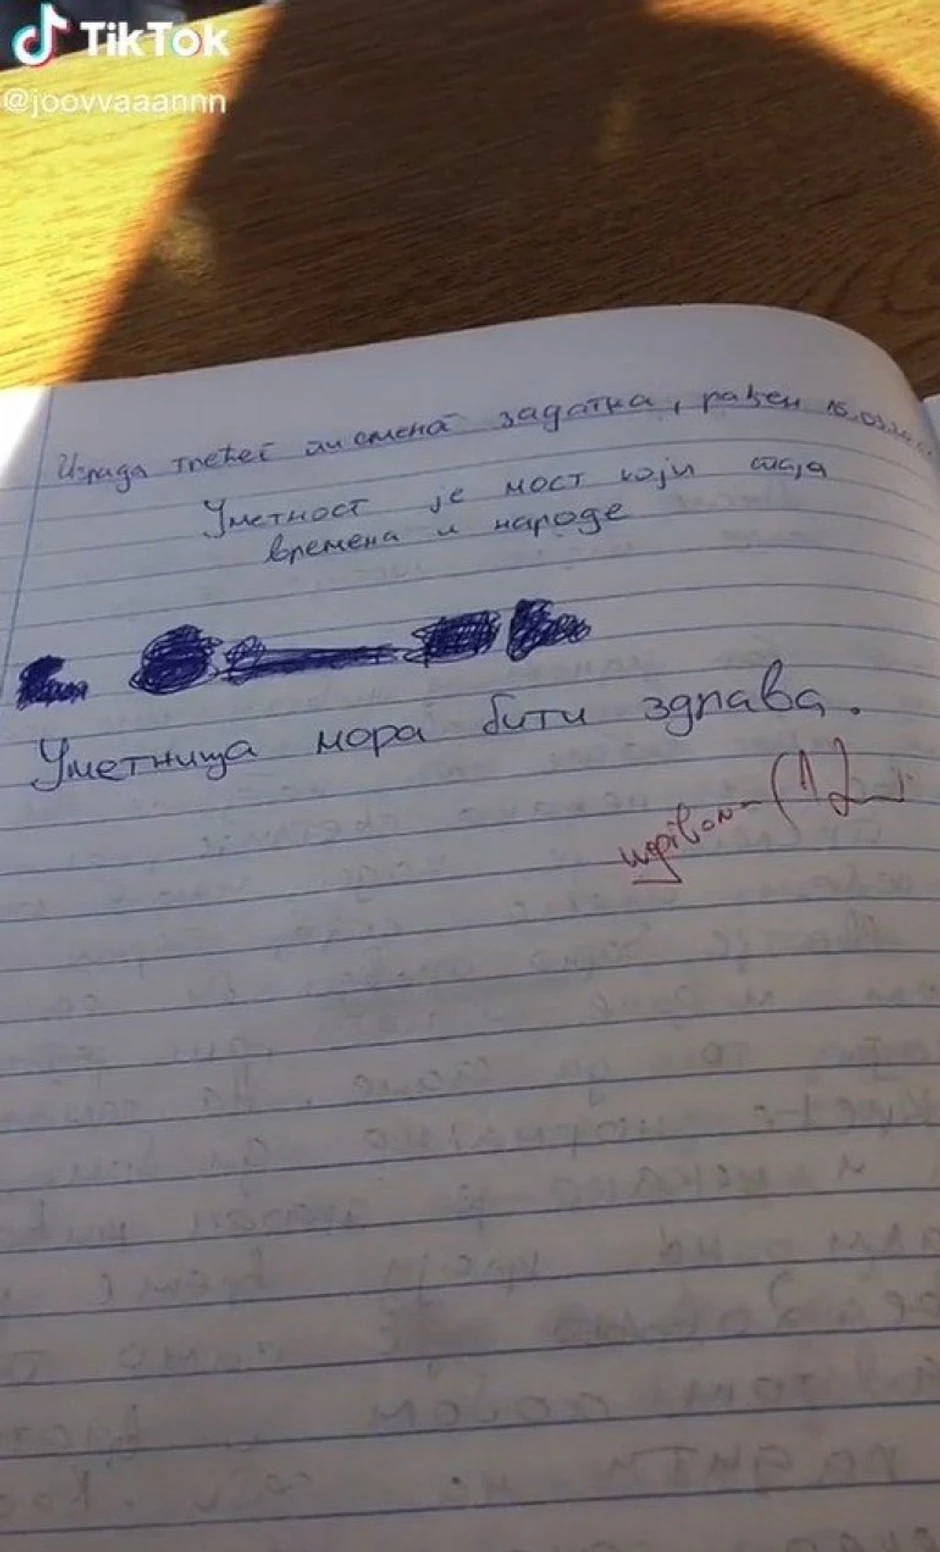 TikTok
@joovvaaannn
Израда трећег писменог задатка, рађен 15.03.20
Уметност је мост који спаја
времена и народе
Уметница мора бити здрава.
(1)